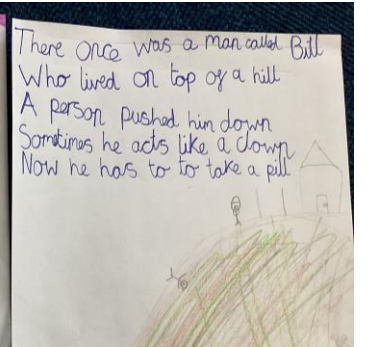 There once was a man called Bill
Who lived on top of a hill
A person pushed him down
Sometimes he acts like a clown
Now he has to to take a pill